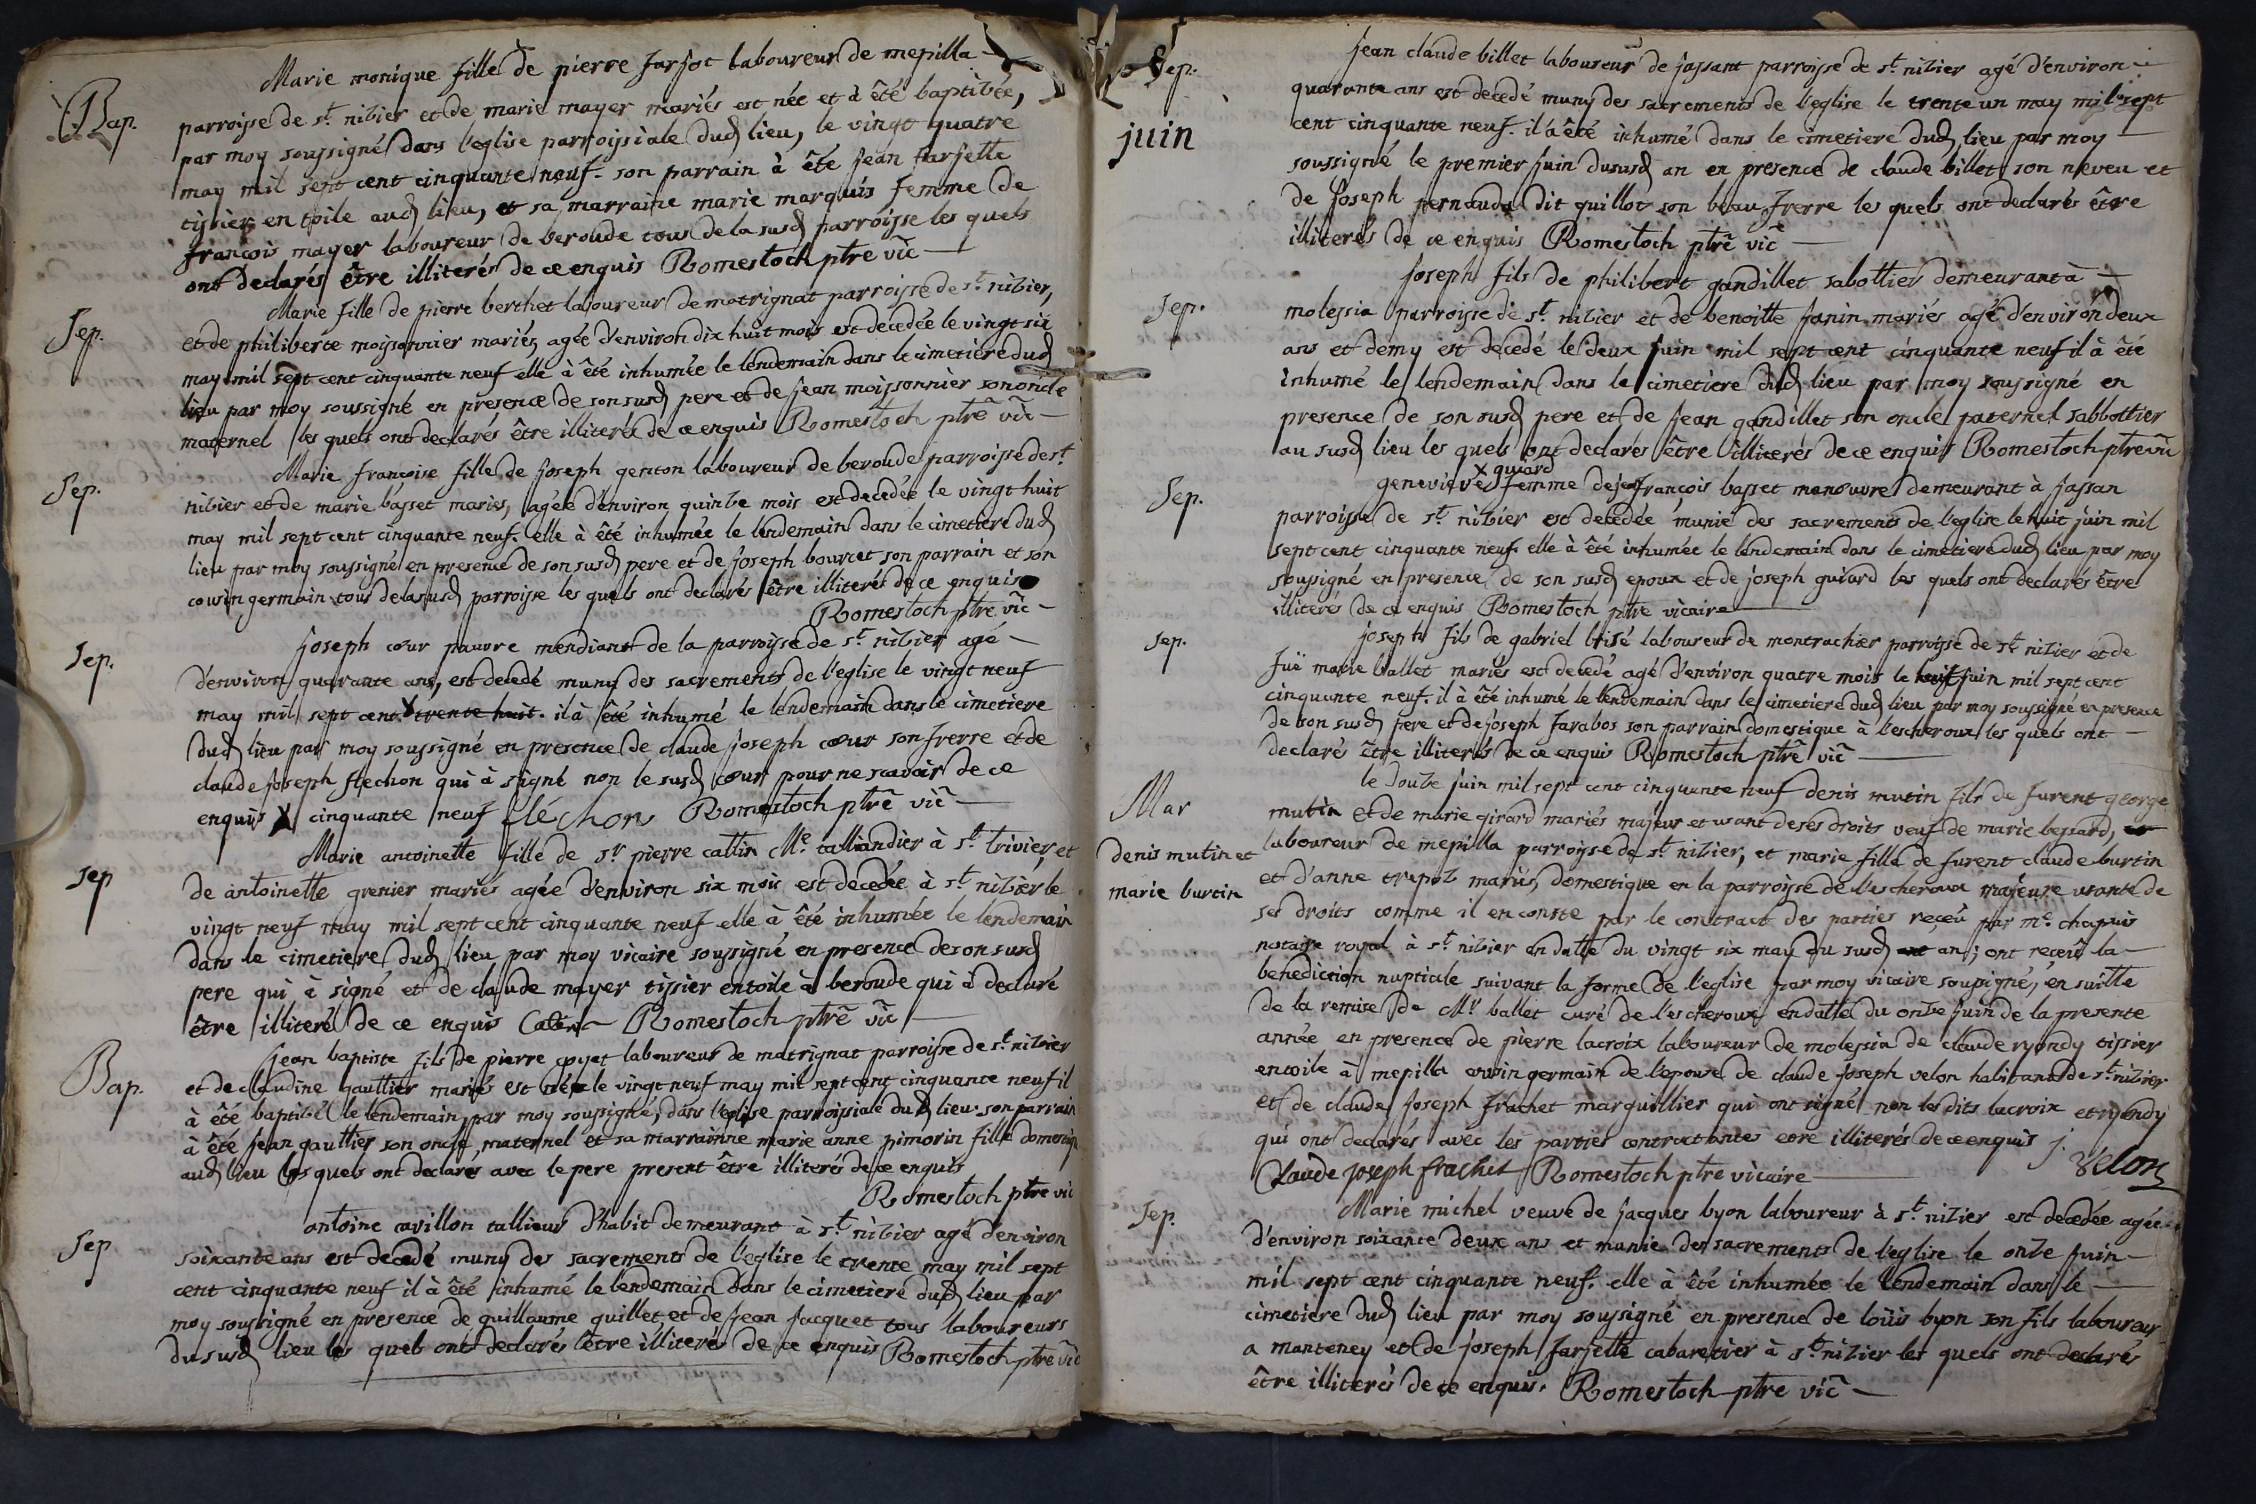 Bap.
Marie monique fille de pierre farjot laboureur de mepilla
parroisse de st. nizier et de marie mayer mariés est née et à êté baptizée,
par moy soussigné dans l'eglise parroissiale dud lieu, le vingt quatre
may mil sept cent cinquante neuf. son parrain à êté jean farjette
tissier en toile aud lieu, et sa marraine marie marquis femme de
françois mayer laboureur de beroude tous de la susd parroisse les quels
ont declarés être illiterés de ce enquis Romestoch ptrê vic̃
Sep.
Marie fille de pierre berthet laboureur de matrignat parroisse de st. nizier,
et de philiberte moissonnier mariés, agée d'environ dix huit mois est decedée le vingt six
may mil sept cent cinquante neuf elle à êté inhumée le lendemain dans le cimetiere dud
lieu par moy soussigné en presence de son susd pere et de jean moissonnier son oncle
maternel les quels ont declarés être illiterés de ce enquis Romestoch ptrê vic̃
Sep.
Marie françoise fille de joseph genton laboureur de beroude parroisse de st.
nizier et de marie basset mariés, agée d'environ quinze mois est decedée le vingt huit
may mil sept cent cinquante neuf. elle à êté inhumée le lendemain dans le cimetiere dud
lieu par moy soussigné en presence de son susd pere et de joseph bourcet son parrain et son
cousin germain tous de la susd parroisse les quels ont declarés être illiterés de ce enquis
Romestoch ptre vic̃
Sep.
joseph cœur pauvre mendiant de la parroisse de st. nizier agé
d'environ quarante ans, est decedé muny des sacrements de l'eglise le vingt neuf
may mil sept cent X trente huit. il à êté inhumé le lendemain dans le cimetiere
dud lieu par moy soussigné en presence de claude joseph cœur son frerre et de
claude joseph flechon qui à signé non le susd cœur pour ne scavoir de ce
enquis X cinquante neuf fléchon Romestoch ptrê vic̃
Sep
Marie antoinette fille de sr pierre cattin Me. talliandier à st. trivier, et
de antoinette grenier mariés agée d'environ six mois est decedée à st. nizier le
vingt neuf may mil sept cent cinquante neuf elle à êté inhumée le lendemain
dans le cimetiere dud lieu par moy vicaire soussigné en presence de son susd
pere qui à signé et de claude mayer tissier en toile à beroude qui à declaré
être illiteré de ce enquis Catin Romestoch ptrê vic̃
Bap.
Jean baptiste fils de pierre goyet laboureur de matrignat parroisse de st. nizier
et de claudine gaultier mariés est née le vingt neuf may mil sept cent cinquante neuf il
à êté baptizé le lendemain, par moy soussigné, dans l'eglise parroissiale dud lieu. son parrain
à êté jean gaultier son oncle, maternel et sa marrainne marie anne pimorin fille domestiq
aud lieu les quels ont declarés avec le pere present être illiterés de ce enquis
Romestoch ptre vic
Sep
antoine cavillon tallieur d'habit demeurant à st. nizier agé d'environ
soixante ans est decedé muny des sacrements de l'eglise le trente may mil sept
cent cinquante neuf il à êté inhumé le lendemain dans le cimetiere dud lieu par
moy soussigné en presence de guillaume guillet et de jean jacquet tous laboureurs
du susd lieu les quels ont declarés être illiterés de ce enquis Romestoch ptrê vic̃
Sep.
juin
jean claude billet laboureur de jassant parroisse de st. nizier agé d'environ
quarante ans est decedé muny des sacrements de l'eglise le trente un may mil sept
cent cinquante neuf. il à êté inhumé dans le cimetiere dud lieu par moy
soussigné le premier juin du susd an en presence de claude billet son neveu et
de joseph pernoude dit guillot son beau frerre les quels ont declarés être
illiterés de ce enquis Romestoch ptrê vic̃
Sep.
joseph fils de philibert gandillet sabottier demeurant à
molessia parroisse de st. nizier et de benoitte janin mariés agé d'environ deux
ans et demy est decedé le deux juin mil sept cent cinquante neuf il à êté
inhumé le lendemain dans le cimetiere dud lieu par moy soussigné en
presence de son susd pere et de jean gandillet son oncle paternel sabbottier
au susd lieu les quels ont declarés être illiterés de ce enquis Romestoch ptre vic̃
Sep.
X guiard
genevieve X femme de jean françois basset manœuvre demeurant à jassan
parroisse de st. nizier est decedée munie des sacrements de l'eglise le huit juin mil
sept cent cinquante neuf. elle à êté inhumée le lendemain dans le cimetiere dud lieu par moy
soussigné en presence de son susd epoux et de joseph guiard les quels ont declarés être
illiterés de ce enquis Romestoch ptre vicaire
Sep.
joseph fils de gabriel brisé laboureur de montrachier parroisse de st. nizier et de
fuë marie ballet mariés est decedé agé d'environ quatre mois le neuf juin mil sept cent
cinquante neuf. il à êté inhumé le lendemain dans le cimetiere dud lieu par moy soussigné en presence
de son susd pere et de joseph farabos son parrain domestique à l'escheroux les quels ont
declarés être illiterés de ce enquis Romestoch ptrê vic̃
Mar
denis mutin et
marie burtin
le douze juin mil sept cent cinquante neuf denis mutin fils de furent george
mutin et de marie girard mariés majeur et usant de ses droits veuf de marie bessard, et
laboureur de mepilla parroisse de st. nizier, et marie fille de furent claude burtin
et d'anne trepoz mariés, domestique en la parroisse de l'escheroux majeure usante de
ses droits comme il en conste par le contract des parties reçeû par me. chapuis
notaire royal à st. nizier en datte du vingt six may du susd an; ont reçeû la
benediction nuptiale suivant la forme de l'eglise par moy vicaire soussigné, en suitte
de la remise de Mr ballet curé de l'escheroux en datte du onze juin de la presente
année en presence de pierre lacroix laboureur de molessia de claude ryondy tissier
en toile à mepilla cousin germain de l'epouse de claude joseph velon habitant de st. nizier
et de claude joseph frachet marguillier qui ont signé non les dits lacroix et ryondy
qui ont declarés avec les parties contractantes etre illiterés de ce enquis j. velon
Claude joseph frachet Romestoch ptre vicaire
Sep.
Marie michel veuve de jacques byon laboureur à st. nizier est decedée agée
d'environ soixante deux ans et munie des sacrements de l'eglise le onze juin
mil sept cent cinquante neuf. elle à êté inhumée le lendemain dans le
cimetiere dud lieu par moy soussigné en presence de loüis byon son fils laboureur
a manteney et de joseph farjette cabaretier à st. nizier les quels ont declarés
être illiterés de ce enquis. Romestoch ptre vic̃